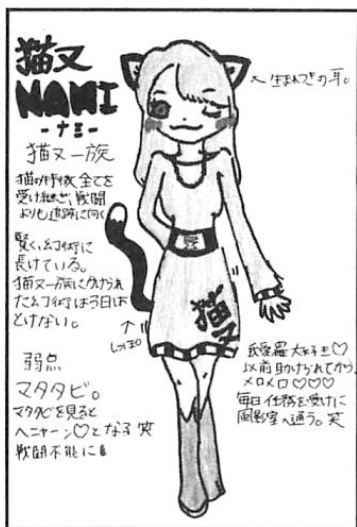 猫又
NAMI
-ナミ-
猫又一族
猫の特徴全てを
受け継ぎ、戦闘
よりも追跡に向く
賢く、幻術に
長けている。
猫又一族にかけられ
た幻術は3日は
とけない。
弱点
マタタビ。
マタタビを見ると
ヘニャーン♡となる 笑
戦闘不能に
生まれつきの耳。
しっぽ
猫又
我愛羅大好き♡
以前助けられてから、
メロメロ♡♡♡
毎日任務を受けに
風影室へ通う。笑